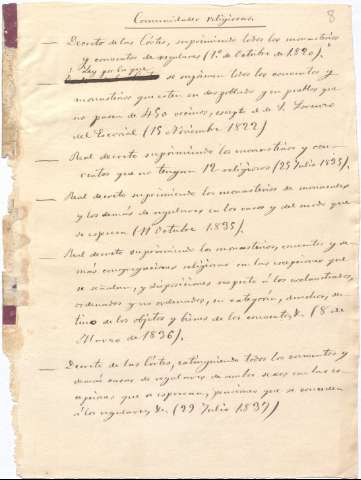 Comunidades religiosas.
8
— Decreto de las Córtes, suprimiendo todos los monasterios
y conventos de regulares (1.º de Octubre de 1820).
Ley por la que se suprimen todos los conventos y
monasterios que esten en despoblado y en pueblos que
no pasen de 450 vecinos, except.º el de S. Lorenzo
del Escorial (15 Noviembre 1822)
— Real decreto suprimiendo los monasterios y con-
ventos que no tengan 12 religiosos (25 Julio 1835).
— Real decreto suprimiendo los monasterios de monacales
y los demás de regulares en los casos y del modo que
se espresa (11 Octubre 1835).
— Real decreto suprimiendo los monasterios, conventos y de-
más congregaciones religiosas con las escepciones que
se señalan, y disposiciones respecto á los esclaustrados,
ordenados y no ordenados, su categoria, derechos, des-
tino de los objetos y bienes de los conventos, &. (8 de
Marzo de 1836).
— Decreto de las Córtes, extinguiendo todos los conventos y
demás casas de regulares de ambos sexos con las es-
cepciones que se espresan, pensiones que se conceden
á los regulares, &. (29 Julio 1837)